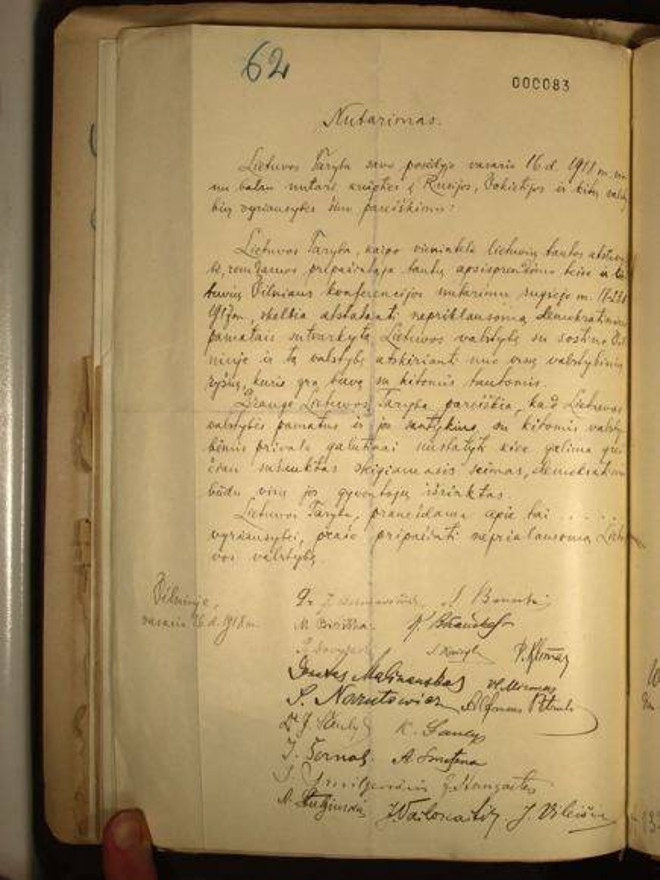 62
000083
Nutarimas.
Lietuvos Taryba savo posėdyje vasario 16 d. 1918 m. vie
nu balsu nutarė kreiptis į Rusijos, Vokietijos ir kitų valsty
bių vyriausybes šiuo pareiškimu:
Lietuvos Taryba, kaipo vienintelė lietuvių tautos atstovy
bė, remdamos pripažintąja tautų apsisprendimo teise ir lie
tuvių Vilniaus konferencijos nutarimu rugsėjo m. 18-23 d
1917 m., skelbia atstatanti nepriklausomą demokratiniais
pamatais sutvarkytą Lietuvos valstybę su sostine Vil
niuje ir tą valstybę atskirianti nuo visų valstybinių
ryšių, kurie yra buvę su kitomis tautomis.
Drauge Lietuvos Taryba pareiškia, kad Lietuvos
valstybės pamatus ir jos santykius su kitomis valsty
bėmis privalo galutinai nustatyti kiek galima grei
čiau sušauktas steigiamasis seimas, demokratiniu
būdu visų jos gyventojų išrinktas.
Lietuvos Taryba, pranešdama apie tai . . . . . .
vyriausybei, prašo pripažinti nepriklausomą Lietu
vos valstybę.
Vilniuje,
vasario 16 d. 1918 m.
Dr. J. Basanavičius S. Banaitis
M. Biržiška K. Bizauskas
P. Klimas
Donatas Malinauskas Vl. Mironas
S. Narutowicz Alfonsas Petrulis
Dr J. Šaulys K. Šaulys
J. Šernas A. Smetona
J. Smilgevičius J. Staugaitis
A. Stulginskis J. Vailokaitis J. Vileišis